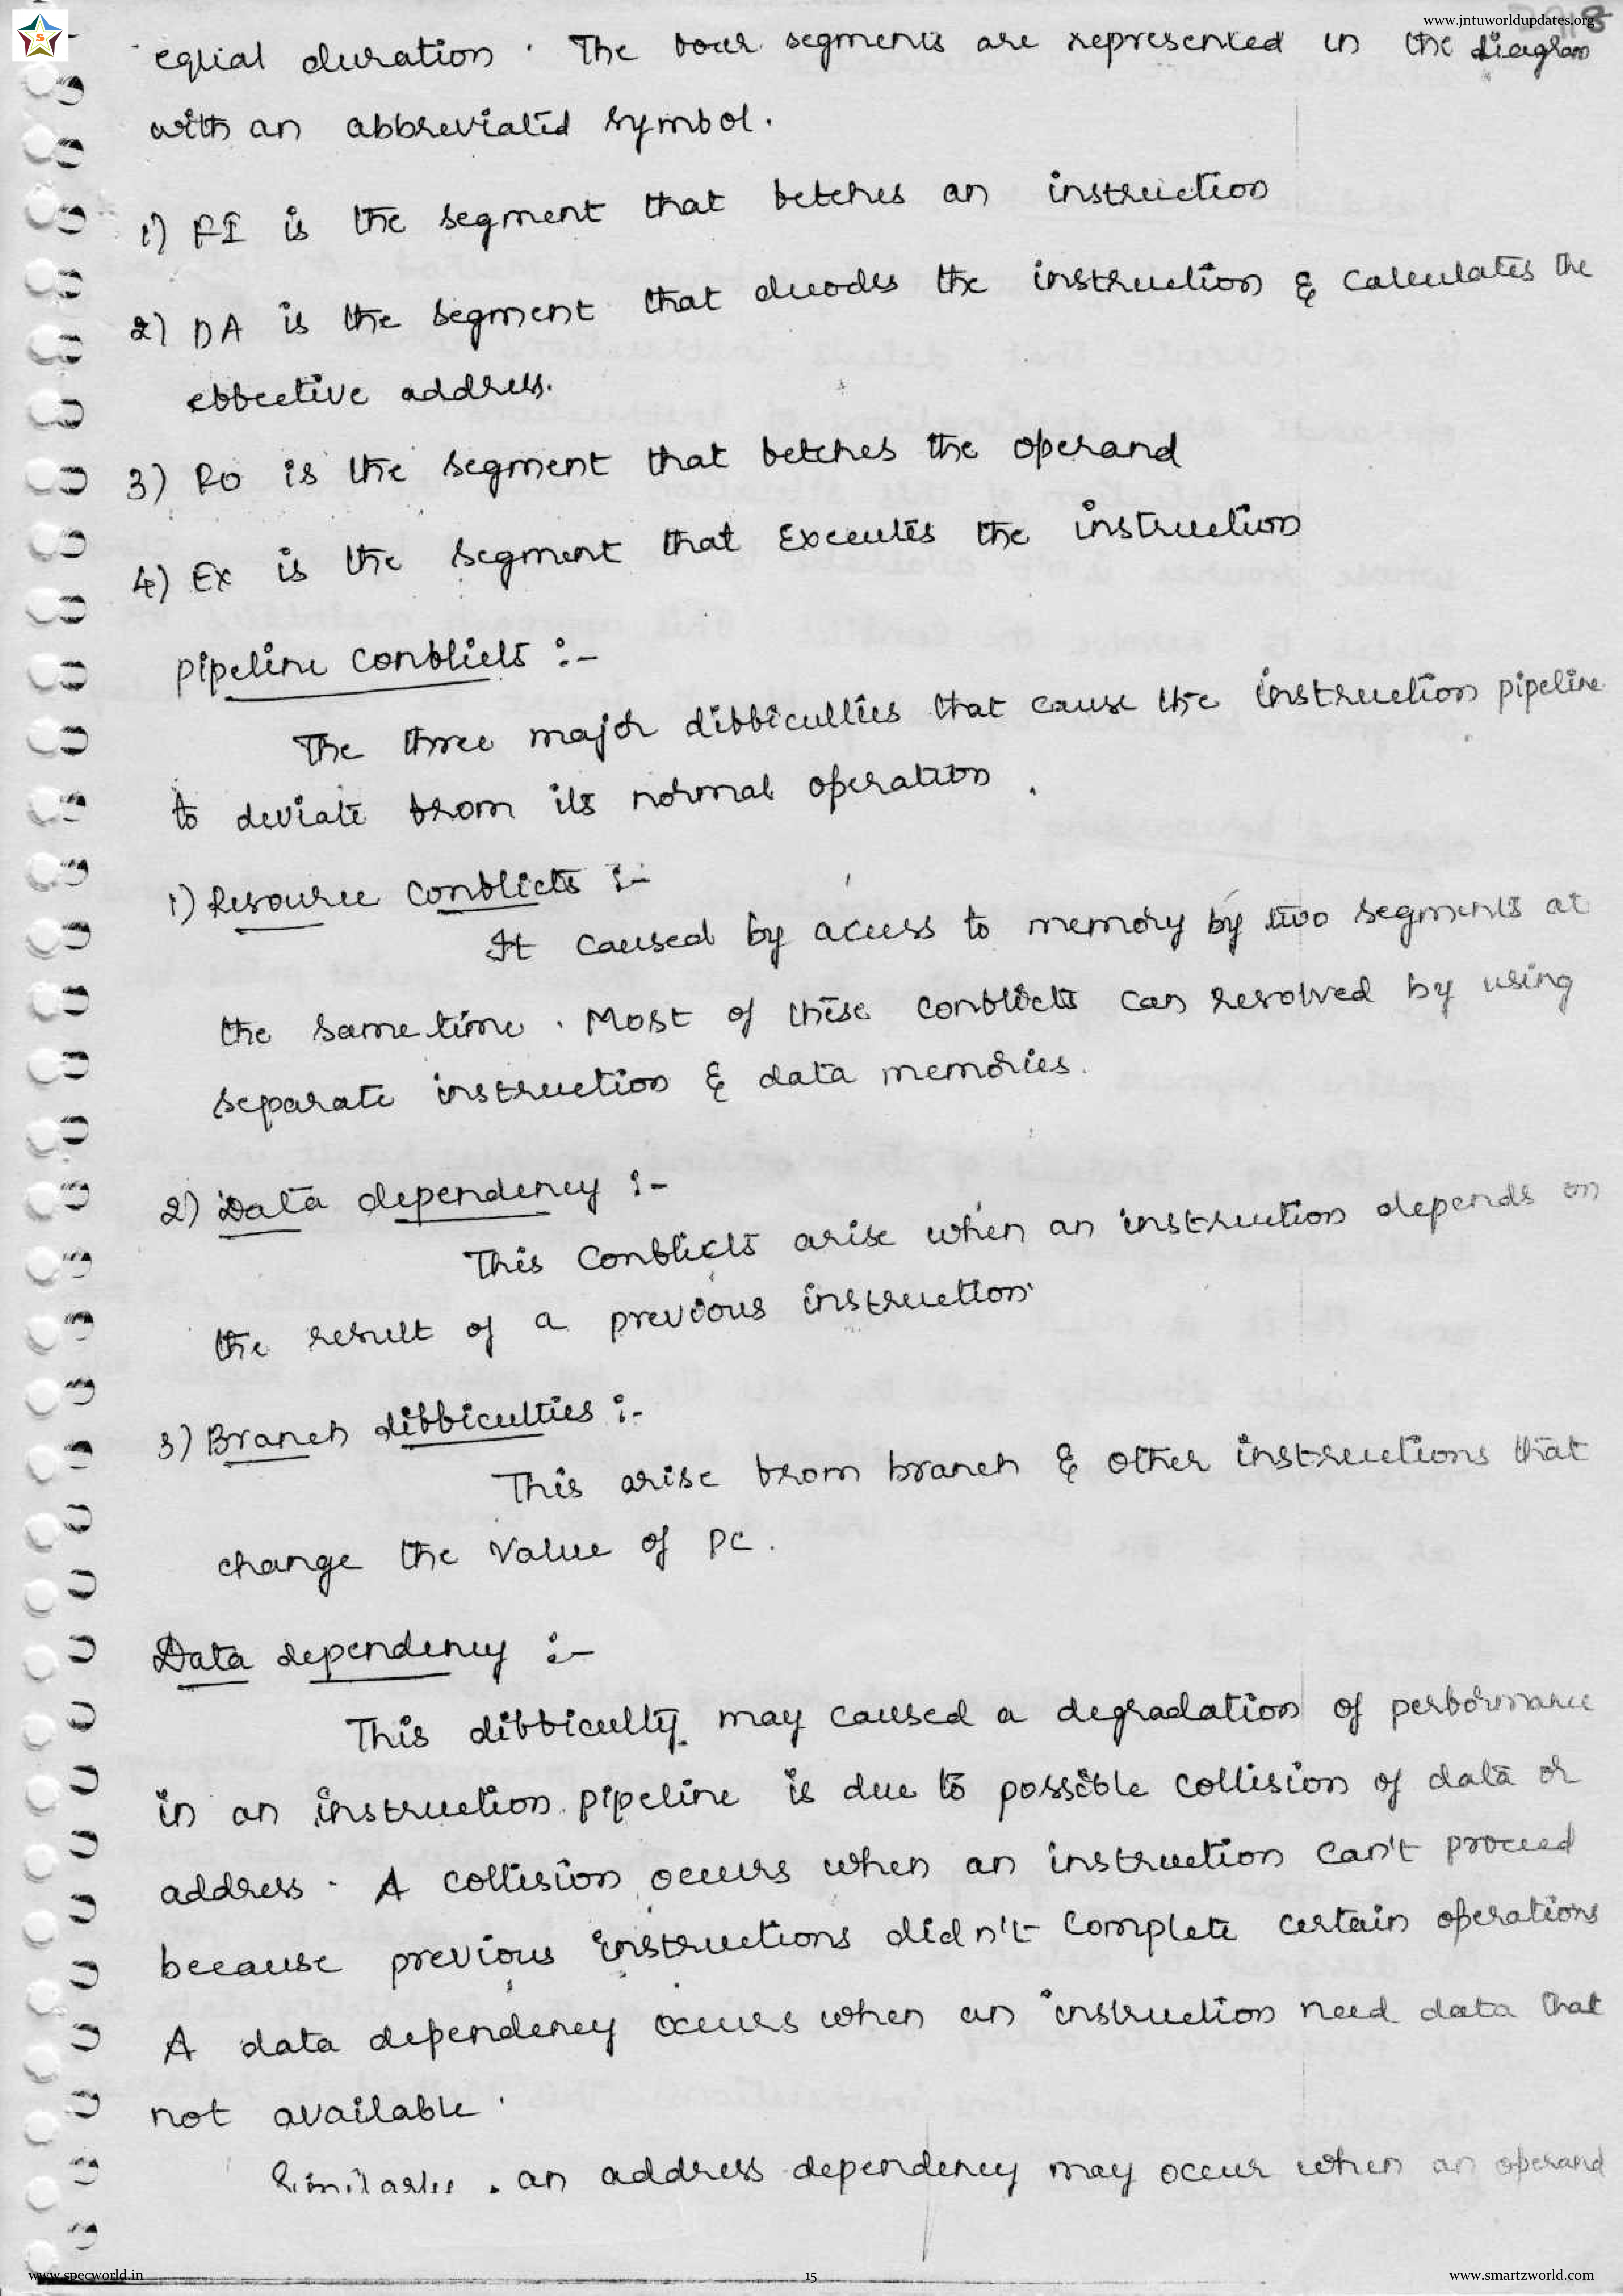 www.jntuworldupdates.org
equal duration. The four segments are represented in the diagram
with an abbreviated symbol.
1) FI is the segment that fetches an instruction
2) DA is the segment that decodes the instruction & calculates the
effective address.
3) FO is the segment that fetches the operand
4) Ex is the segment that Executes the instruction
pipeline conflicts :-
The three major difficulties that cause the instruction pipeline
to deviate from its normal operation.
1) Resource conflicts :-
It caused by access to memory by two segments at
the same time. Most of these conflicts can resolved by using
separate instruction & data memories.
2) Data dependency :-
This conflicts arise when an instruction depends on
the result of a previous instruction.
3) Branch difficulties :-
This arise from branch & other instructions that
change the value of PC.
Data dependency :-
This difficulty may caused a degradation of performance
in an instruction pipeline is due to possible collision of data or
address. A collision occurs when an instruction can't proceed
because previous instructions didn't complete certain operations
A data dependency occurs when an instruction need data that
not available.
Similarly, an address dependency may occur when an operand
www.specworld.in 15 www.smartzworld.com